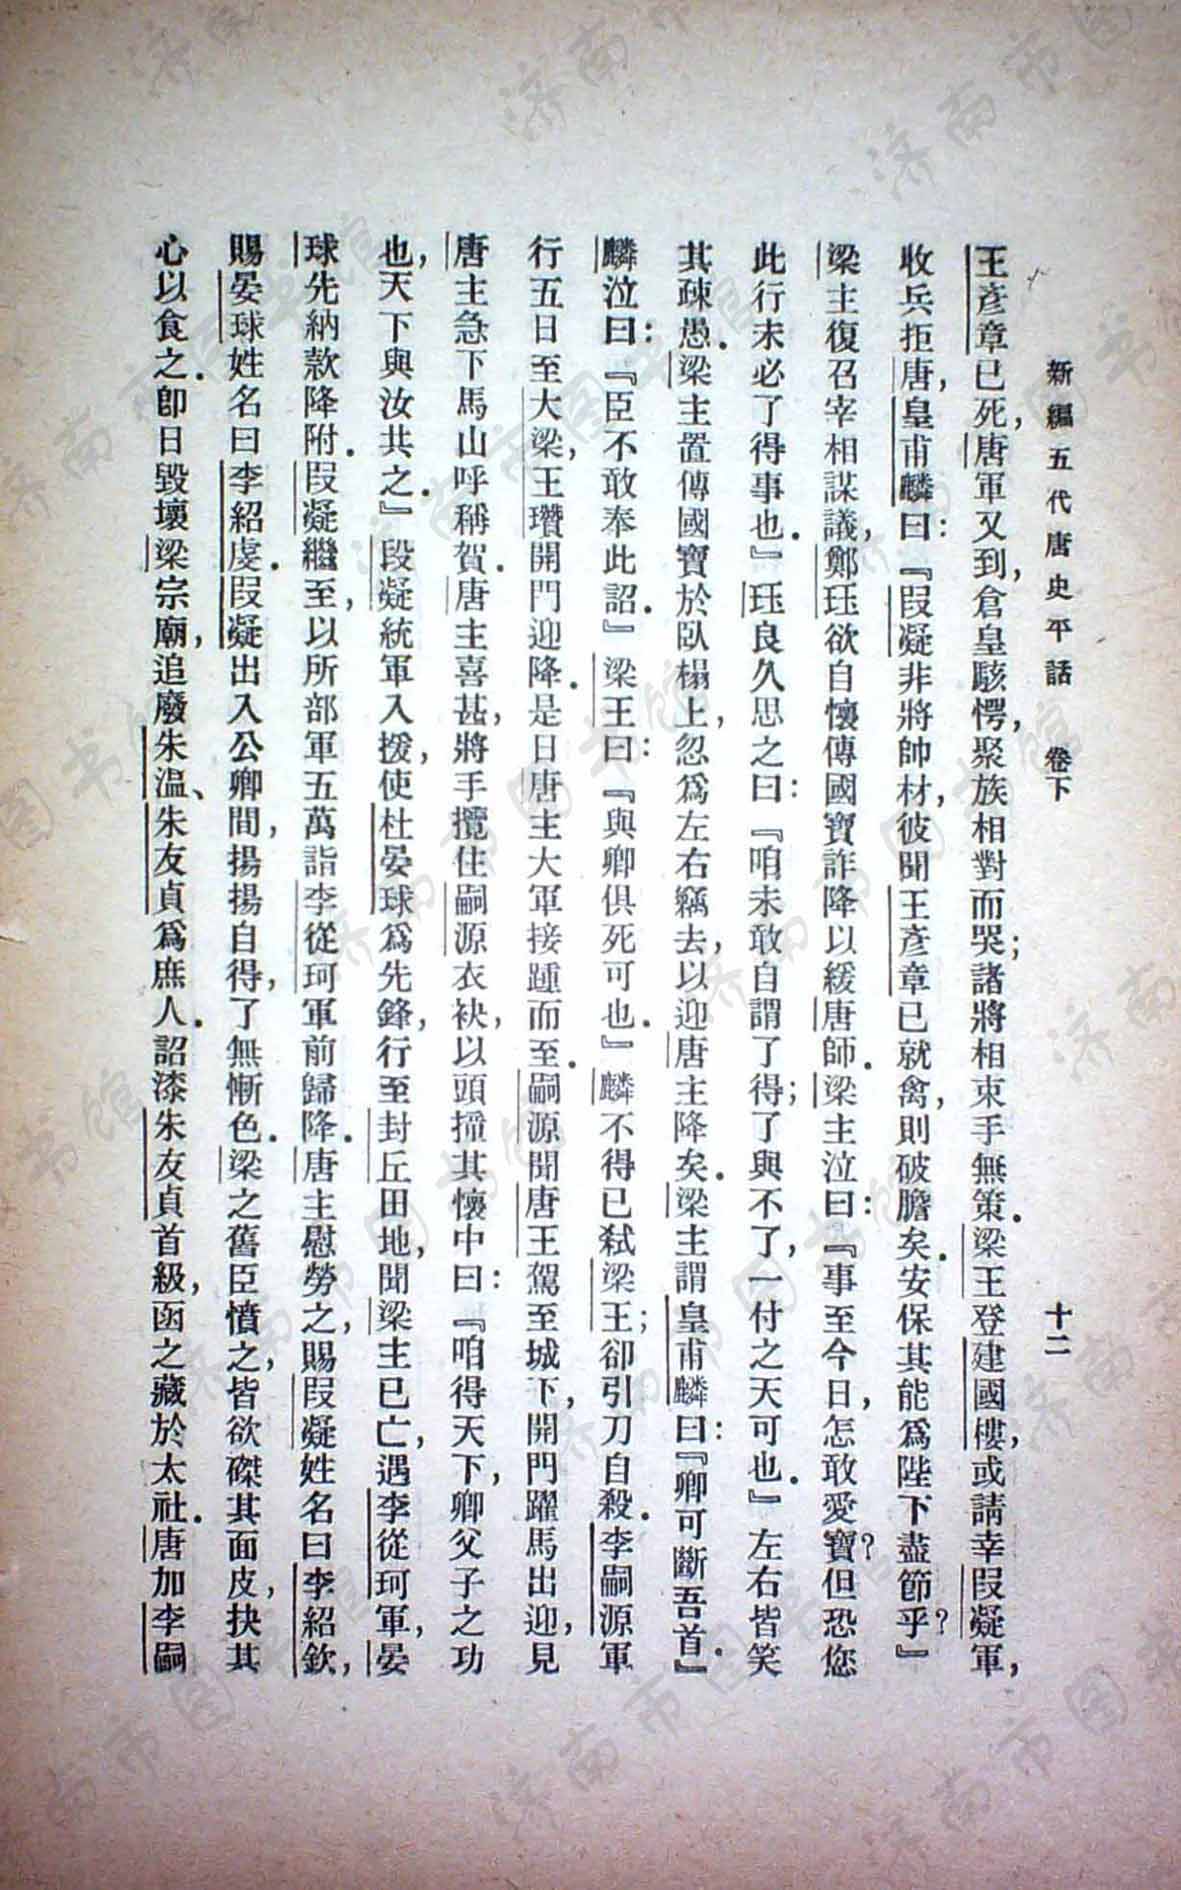 新編五代唐史平話　卷下　十二
王彥章已死，唐軍又到，倉皇駭愕，聚族相對而哭；諸將相束手無策。梁王登建國樓，或請幸段凝軍，
收兵拒唐，皇甫麟曰：『段凝非將帥材，彼聞王彥章已就禽，則破膽矣。安保其能爲陛下盡節乎？』
梁主復召宰相謀議，鄭珏欲自懷傳國寶詐降以緩唐師。梁主泣曰：『事至今日，怎敢愛寶？但恐您
此行未必了得事也。』珏良久思之曰：『咱未敢自謂了得；了與不了，一付之天可也。』左右皆笑
其疎愚。梁主置傳國寶於臥榻上，忽爲左右竊去，以迎唐主降矣。梁主謂皇甫麟曰：『卿可斷吾首。』
麟泣曰：『臣不敢奉此詔。』梁王曰：『與卿俱死可也。』麟不得已弒梁王；卻引刀自殺。李嗣源軍
行五日至大梁，王瓚開門迎降。是日唐主大軍接踵而至。嗣源聞唐王駕至城下，開門躍馬出迎，見
唐主急下馬山呼稱賀。唐主喜甚，將手攬住嗣源衣袂，以頭撞其懷中曰：『咱得天下，卿父子之功
也，天下與汝共之。』段凝統軍入援，使杜晏球爲先鋒，行至封丘田地，聞梁主已亡，遇李從珂軍，晏
球先納款降附。段凝繼至，以所部軍五萬詣李從珂軍前歸降。唐主慰勞之，賜段凝姓名曰李紹欽，
賜晏球姓名曰李紹虔。段凝出入公卿間，揚揚自得，了無慚色。梁之舊臣憤之，皆欲磔其面皮，抉其
心以食之。卽日毀壞梁宗廟，追廢朱溫、朱友貞爲庶人。詔漆朱友貞首級，函之藏於太社。唐加李嗣
濟南市图书馆